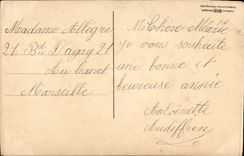 Madame Allègre
21 Bd Dagny 21
Au Canet
Marseille
Mlle Chère Marie
je vous souhaite
une bonne et
heureuse année
Antoinette
Audiffren